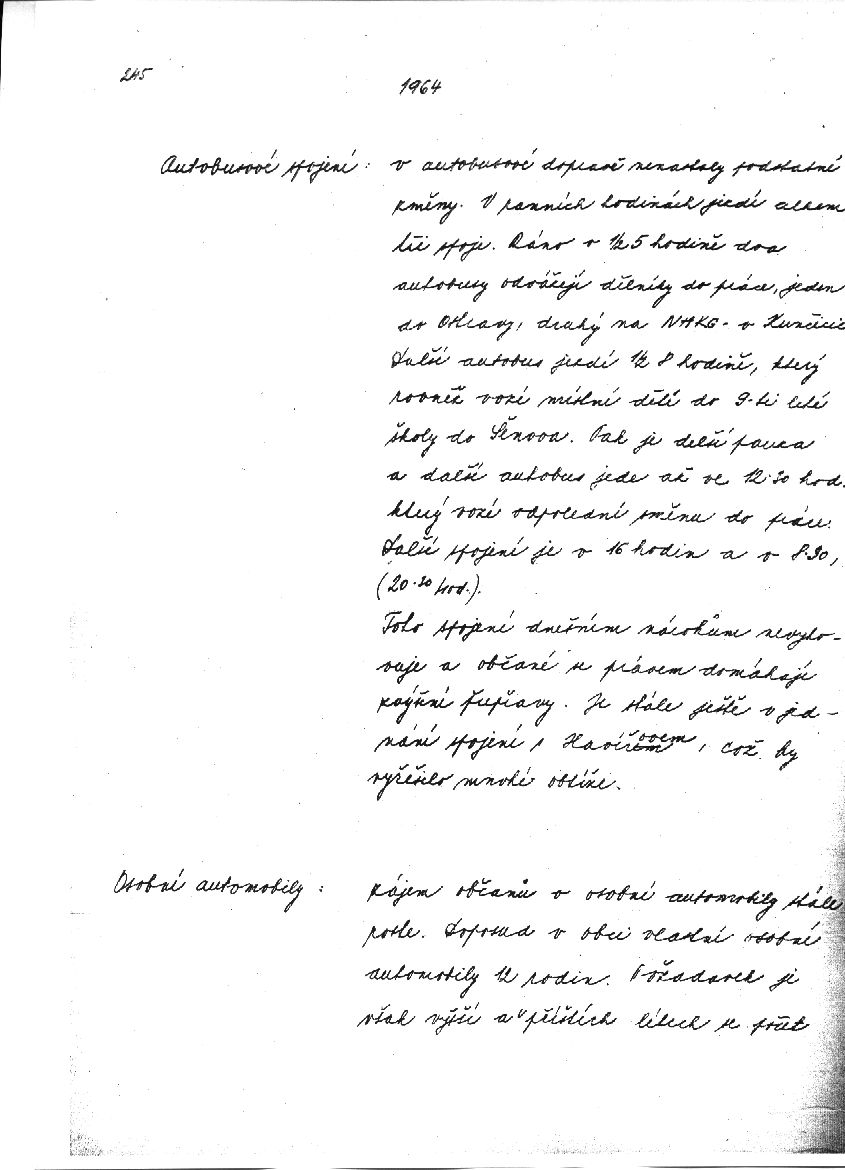 245
1964
Autobusové spojení: v autobusové dopravě nenastaly podstatné
změny. V ranních hodinách jezdí celkem
tři spoje. Ráno v 1/2 5 hodině dva
autobusy odvážejí dělníky do práce, jeden
do Ostravy, druhý na NHKG - v Kunčicíc
Další autobus jezdí 1/2 8 hodině, který
rovněž vozí místní děti do 9-ti leté
školy do Šenova. Pak je delší pauza
a další autobus jede až ve 12.30 hod.
který vozí odpolední směnu do práce.
Další spojení je v 16 hodin a v 8.30,
(20.30 hod.).
Toto spojení dnešním nárokům nevyho-
vuje a občané se právem domáhají
zvýšení úpravy. Je stále ještě v jed-
nání spojení s Havířovem, což by
vyřešilo mnohé obtíže.
Osobní automobily: Zájem občanů o osobní automobily stále
roste. Doposud v obci vlastní osobní
automobily 12 rodin. Požadavek je
však vyšší a v příštích létech se počet